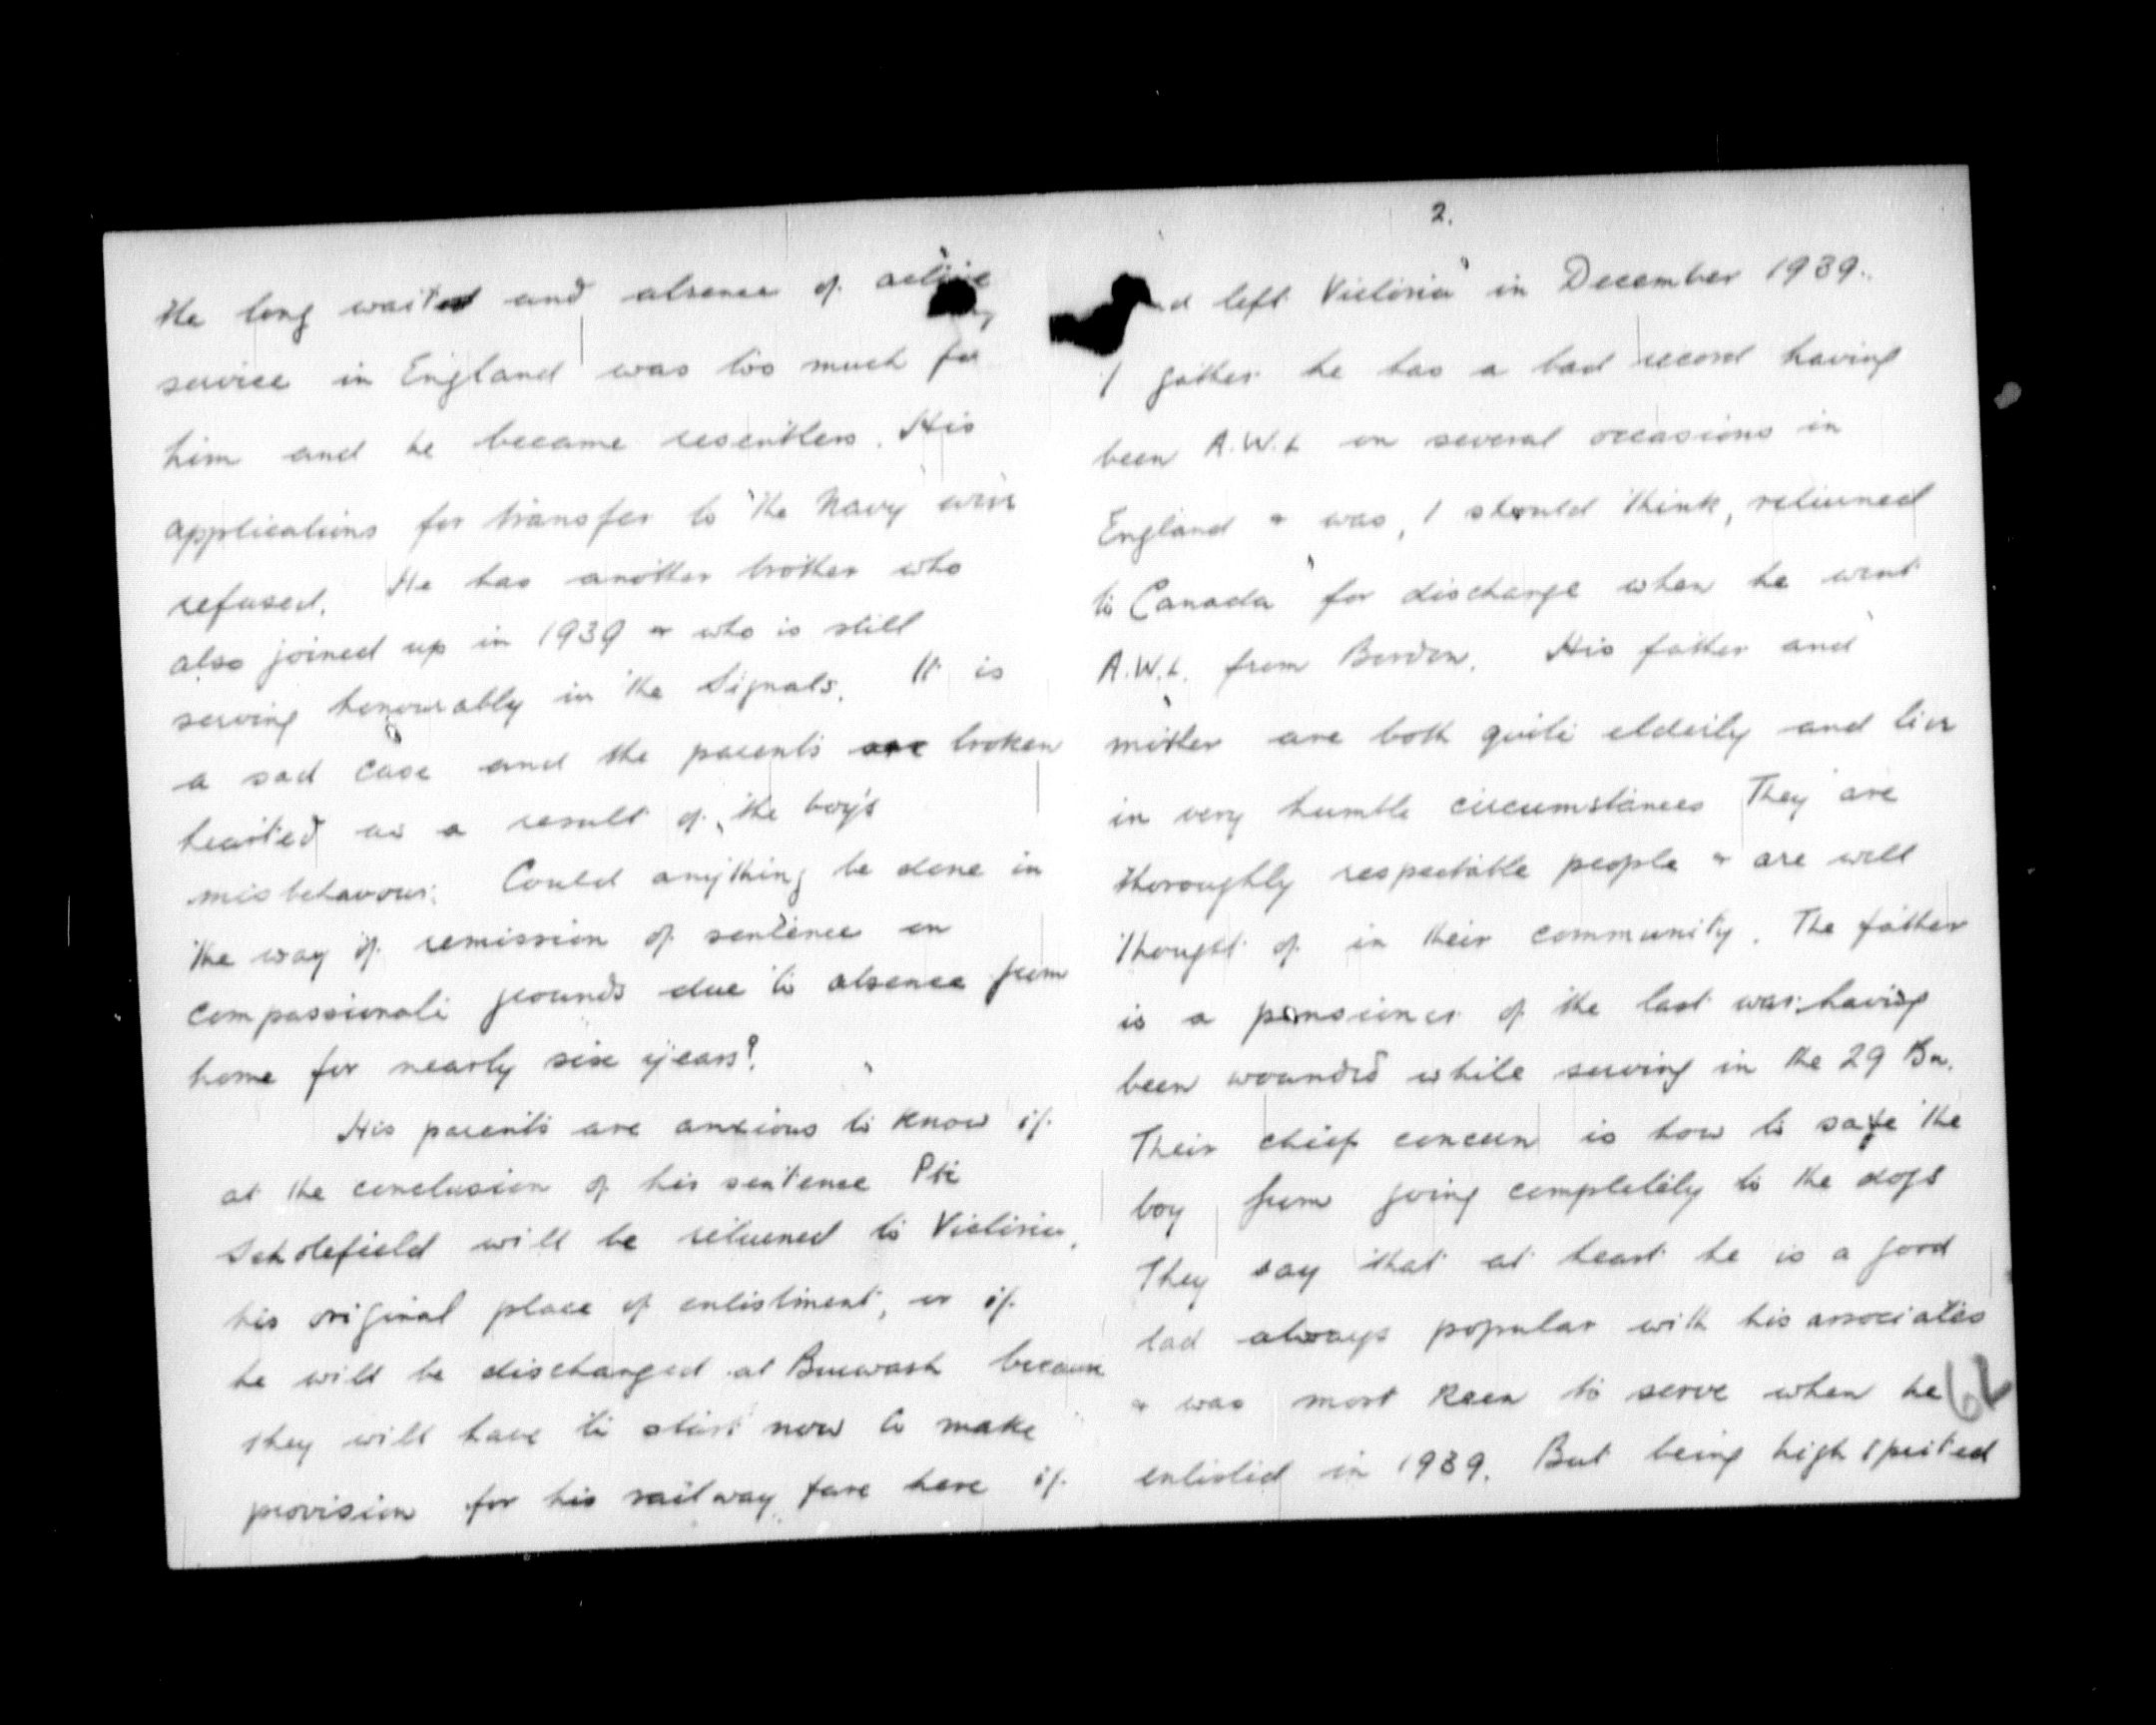 2.
left Victoria in December 1939.
I gather he has a bad record having
been A.W.L on several occasions in
England & was, I should think, returned
to Canada for discharge when he went
A.W.L. from Borden. His father and
mother are both quite elderly and live
in very humble circumstances They are
thoroughly respectable people & are well
thought of in their community. The father
is a pensioner of the last war having
been wounded while serving in the 29 Bn.
Their chief concern is how to save the
boy from going completely to the dogs
They say that at heart he is a good
lad always popular with his associates
& was most keen to serve when he
enlisted in 1939. But being high spirited
the long wait and absence of active
service in England was too much for
him and he became resentless. His
applications for transfer to the Navy were
refused. He has another brother who
also joined up in 1939 & who is still
serving honourably in the Signals. It is
a sad case and the parents are broken
hearted as a result of the boy's
misbehavour. Could anything be done in
the way of remission of sentence on
compassionate grounds due to absence from
home for nearly six years?
His parents are anxious to know if
at the conclusion of his sentence Pte
Scholefield will be returned to Victoria,
his original place of enlistment, or if
he will be discharged at Burwash because
they will have to start now to make
provision for his railway fare here if